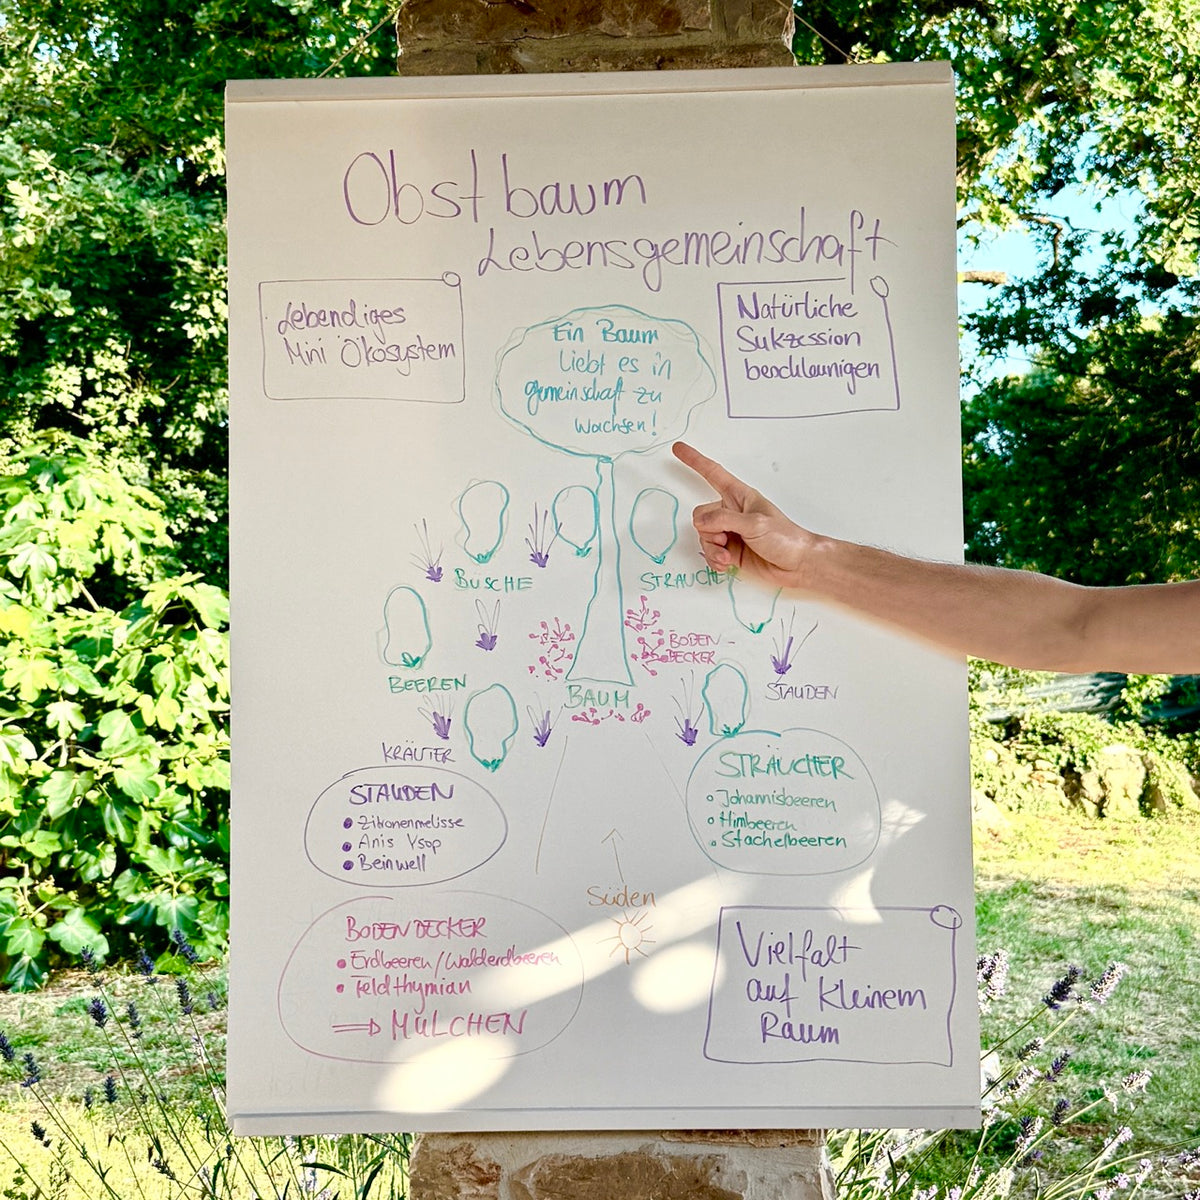 Obstbaum
Lebensgemeinschaft
Lebendiges
Mini Ökosystem
Natürliche
Sukzession
beschleunigen
Ein Baum
Liebt es in
gemeinschaft zu
Wachsen!
BÜSCHE
STRÄUCHER
BODEN-
DECKER
BEEREN
BAUM
STAUDEN
KRÄUTER
STAUDEN
• Zitronenmelisse
• Anis Ysop
• Beinwell
STRÄUCHER
• Johannisbeeren
• Himbeeren
• Stachelbeeren
Süden
BODENDECKER
• Erdbeeren/Walderdbeeren
• Feldthymian
⇒ MULCHEN
Vielfalt
auf kleinem
Raum